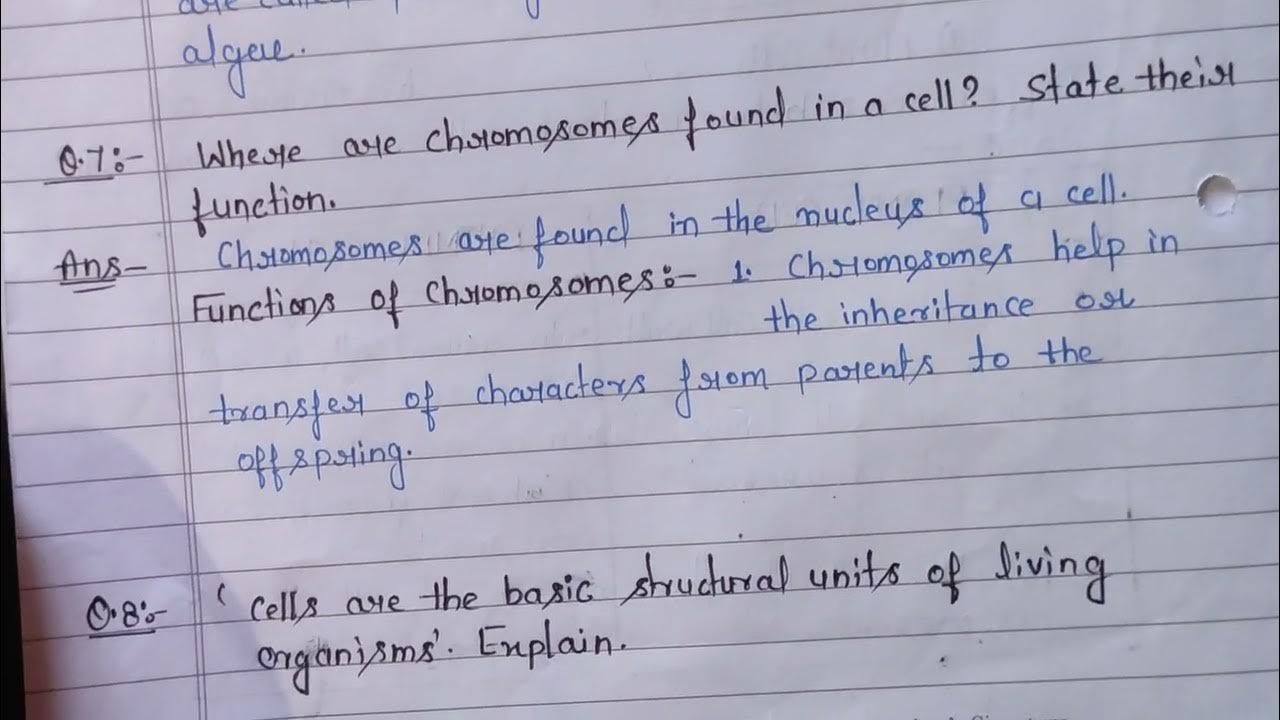 algae.
Q.7:- Where are chromosomes found in a cell? State their
function.
Ans- Chromosomes are found in the nucleus of a cell.
Functions of Chromosomes:- 1. Chromosomes help in
the inheritance or
transfer of characters from parents to the
offspring.
Q.8:- 'Cells are the basic structural units of living
organisms'. Explain.